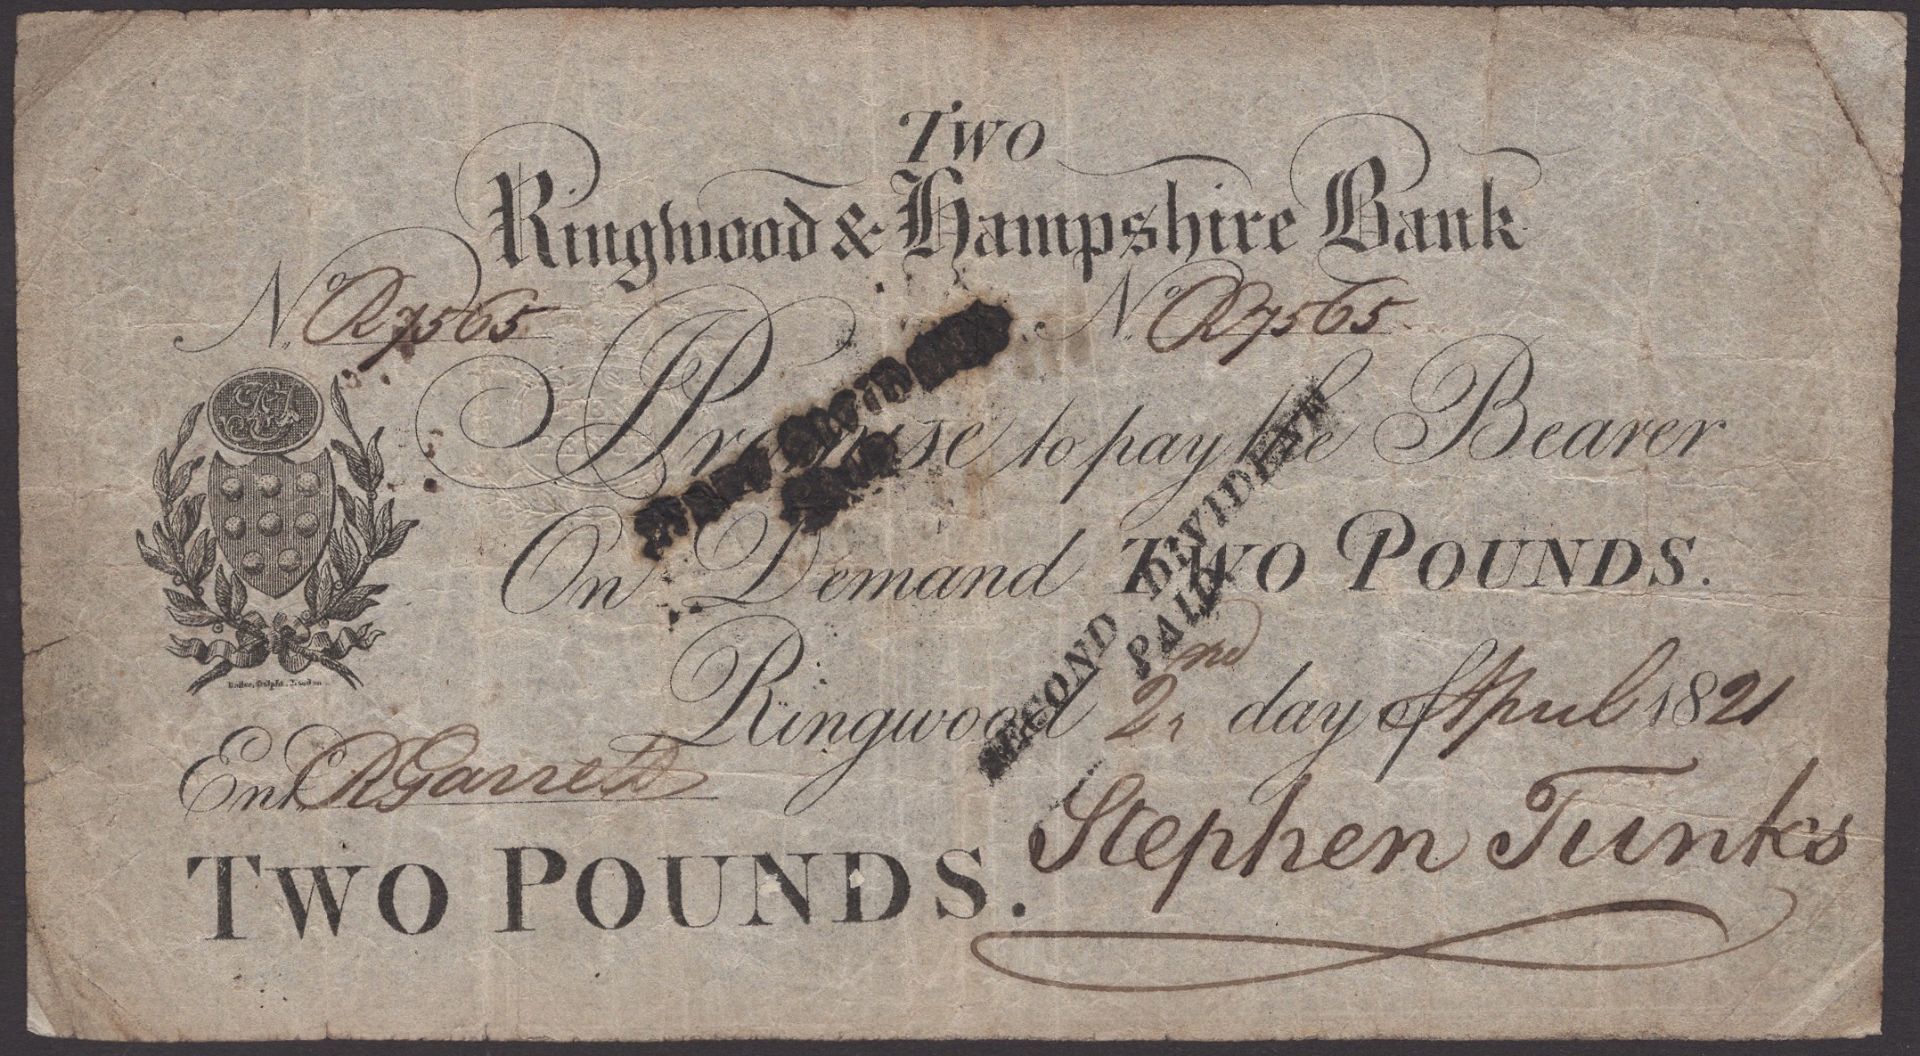 Two
Ringwood & Hampshire Bank
No. R7565 No. R7565
I Promise to pay the Bearer
On Demand Two Pounds.
Ringwood 2nd day of April 1821
Entd. R Garrett
Two Pounds.
Stephen Tunks
SECOND DIVIDENT
PAID